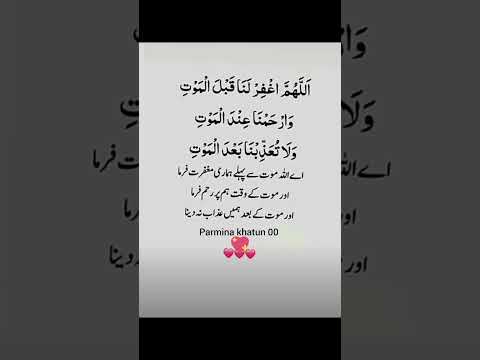 اَللّٰهُمَّ اغْفِرْ لَنَا قَبْلَ الْمَوْتِ
وَارْحَمْنَا عِنْدَ الْمَوْتِ
وَلَا تُعَذِّبْنَا بَعْدَ الْمَوْتِ
اے اللہ موت سے پہلے ہماری مغفرت فرما
اور موت کے وقت ہم پر رحم فرما
اور موت کے بعد ہمیں عذاب نہ دینا
Parmina khatun 00